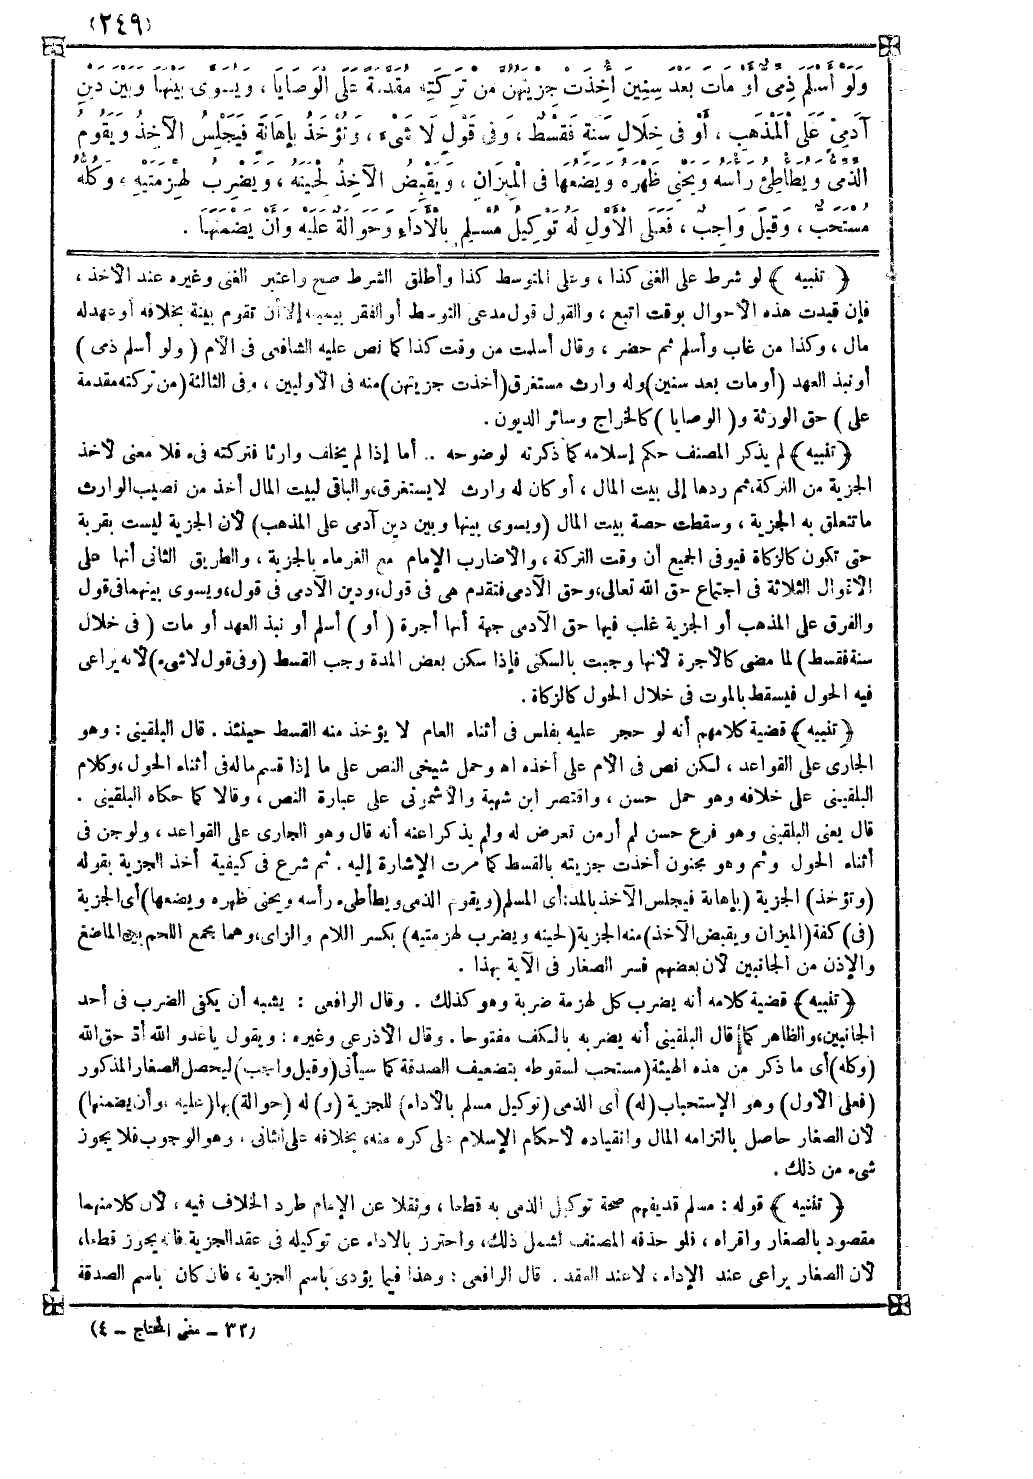 (٢٤٩)
وَلَوْ أَسْلَمَ ذِمِّيٌّ أَوْ مَاتَ بَعْدَ سِنِينَ أُخِذَتْ جِزْيَتُهُنَّ مِنْ تَرِكَتِهِ مُقَدَّمَةً عَلَى الْوَصَايَا ، وَيُسَوَّى بَيْنَهَا وَبَيْنَ دَيْنِ
آدَمِيٍّ عَلَى الْمَذْهَبِ ، أَوْ فِى خِلَالِ سَنَةٍ فَقِسْطٌ ، وَفِى قَوْلٍ لَا شَىْءَ ، وَتُؤْخَذُ بِإِهَانَةٍ فَيَجْلِسُ الْآخِذُ وَيَقُومُ
الذِّمِّىُّ وَيُطَأْطِئُ رَأْسَهُ وَيَحْنِى ظَهْرَهُ وَيَضَعُهَا فِى الْمِيزَانِ ، وَيَقْبِضُ الْآخِذُ لِحْيَتَهُ ، وَيَضْرِبُ لِهْزِمَتَيْهِ ، وَكُلُّهُ
مُسْتَحَبٌّ ، وَقِيلَ وَاجِبٌ ، فَعَلَى الْأَوَّلِ لَهُ تَوْكِيلُ مُسْلِمٍ بِالْأَدَاءِ وَحَوَالَةٌ عَلَيْهِ وَأَنْ يَضْمَنَهَا .
﴿ تنبيه ﴾ لو شرط على الغنى كذا ، وعلى المتوسط كذا وأطلق الشرط صح واعتبر الغنى وغيره عند الأخذ ،
فإن قيدت هذه الأحوال بوقت اتبع ، والقول قول مدعى التوسط أو الفقر بيمينه إلا أن تقوم بينة بخلافه أو عهد له
مال ، وكذا من غاب وأسلم ثم حضر ، وقال أسلمت من وقت كذا كما نص عليه الشافعى فى الأم ( ولو أسلم ذمى )
أو نبذ العهد (أو مات بعد سنين) وله وارث مستغرق (أخذت جزيتهن) منه فى الأوليين ، وفى الثالثة (من تركته مقدمة
على ) حق الورثة و( الوصايا ) كالخراج وسائر الديون .
﴿ تنبيه ﴾ لم يذكر المصنف حكم إسلامه كما ذكرته لوضوحه .. أما إذا لم يخلف وارثا فتركته فىء فلا معنى لأخذ
الجزية من التركة، ثم ردها إلى بيت المال ، أو كان له وارث لا يستغرق، والباقى لبيت المال أخذ من نصيب الوارث
ما تتعلق به الجزية ، وسقطت حصة بيت المال (ويسوى بينها وبين دين آدمى على المذهب) لأن الجزية ليست بقربة
حتى تكون كالزكاة فيوفى الجميع أن وفت التركة ، والاضارب الإمام مع الغرماء بالجزية ، والطريق الثانى أنها على
الأقوال الثلاثة فى اجتماع حق الله تعالى، وحق الآدمى فتقدم هى فى قول، ودين الآدمى فى قول، ويسوى بينهما فى قول
والفرق على المذهب أو الجزية غلب فيها حق الآدمى جهة أنها أجرة ( أو ) أسلم أو نبذ العهد أو مات ( فى خلال
سنة فقسط ) لما مضى كالأجرة لأنها وجبت بالسكنى فإذا سكن بعض المدة وجب القسط (وفى قول لا شىء) لأنه يراعى
فيه الحول فيسقط بالموت فى خلال الحول كالزكاة .
﴿ تنبيه ﴾ قضية كلامهم أنه لو حجر عليه بفلس فى أثناء العام لا يؤخذ منه القسط حينئذ . قال البلقينى : وهو
الجارى على القواعد ، لكن نص فى الأم على أخذه اه وحمل شيخى النص على ما إذا قسم ماله فى أثناء الحول، وكلام
البلقينى على خلافه وهو حمل حسن ، واقتصر ابن شهبة والأشمونى على عبارة النص ، وقالا كما حكاه البلقينى .
قال يعنى البلقينى وهو فرع حسن لم أر من تعرض له ولم يذكرا عنه أنه قال وهو الجارى على القواعد ، ولو جن فى
أثناء الحول وثم وهو مجنون أخذت جزيته بالقسط كما مرت الإشارة إليه . ثم شرع فى كيفية أخذ الجزية بقوله
(وتؤخذ) الجزية (بإهانة فيجلس الآخذ بالمد: أى المسلم (ويقوم الذمى ويطأطىء رأسه ويحنى ظهره ويضعها) أى الجزية
(فى) كفة (الميزان ويقبض الآخذ) منه الجزية (لحيته ويضرب لهزمتيه) بكسر اللام والزاى، وهما مجمع اللحم بين الماضغ
والإذن من الجانبين لأن بعضهم فسر الصغار فى الآية بهذا .
﴿ تنبيه ﴾ قضية كلامه أنه يضرب كل لهزمة ضربة وهو كذلك . وقال الرافعى : يشبه أن يكفى الضرب فى أحد
الجانبين، والظاهر كما قال البلقينى أنه يضربه بالكف مفتوحا . وقال الأذرعى وغيره : ويقول يا عدو الله أدّ حق الله
(وكله) أى ما ذكر من هذه الهيئة (مستحب لسقوطه بتضعيف الصدقة كما سيأتى (وقيل واجب) ليحصل الصغار المذكور
(فعلى الأول) وهو الإستحباب (له) أى الذمى (توكيل مسلم بالأداء) للجزية (و) له (حوالة) بها (عليه ، وأن يضمنها)
لأن الصغار حاصل بالتزامه المال وانقياده لأحكام الإسلام على كره منه، بخلافه على الثانى ، وهو الوجوب فلا يجوز
شىء من ذلك .
﴿ تنبيه ﴾ قوله : مسلم قد يفهم صحة توكيل الذمى به قطعا ، ونقلا عن الإمام طرد الخلاف فيه ، لأن كلا منهما
مقصود بالصغار وأقراه ، فلو حذفه المصنف لشمل ذلك، واحترز بالأداء عن توكيله فى عقد الجزية فانه يجوز قطعا،
لأن الصغار يراعى عند الإداء ، لا عند العقد . قال الرافعى : وهذا فيما يؤدى باسم الجزية ، فان كان باسم الصدقة
(٣٢ – مغنى المحتاج – ٤)